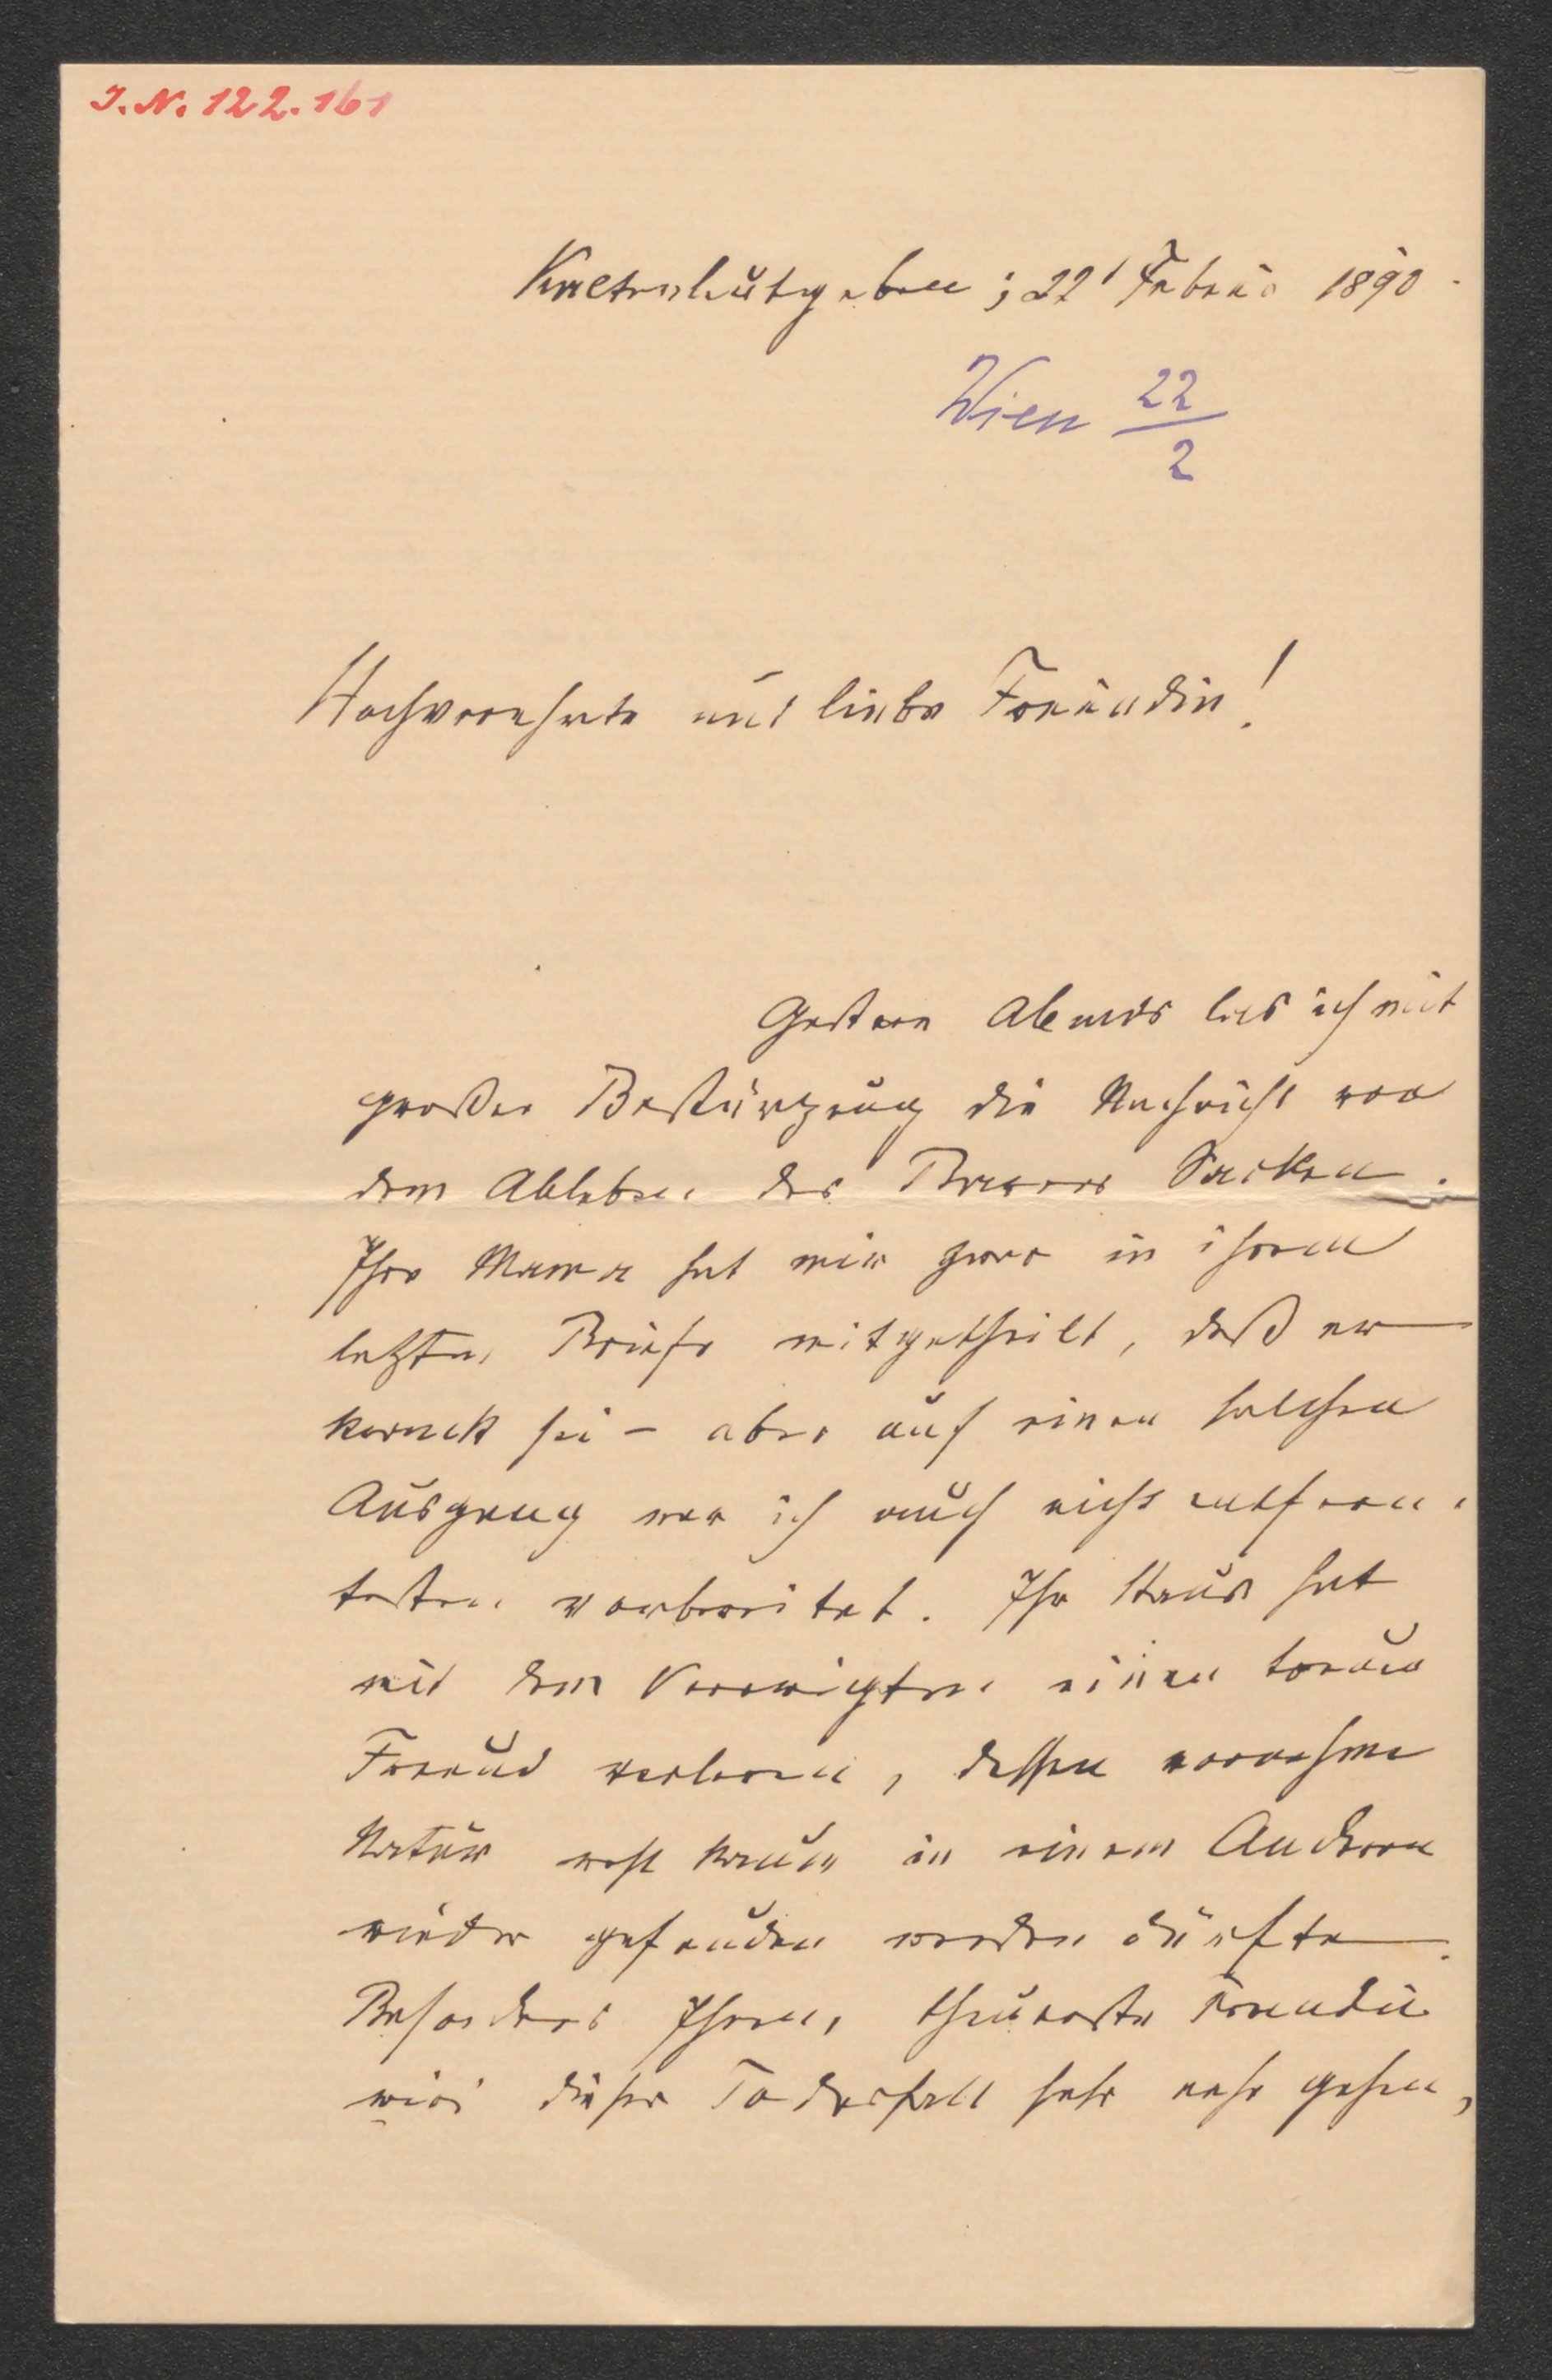 J. N. 122.161
Kaltenleutgeben, 22' Februar 1890.
Wien 22/2
Hochverehrte und liebe Freundin!
Gestern Abends las ich mit
großer Bestürzung die Nachricht von
dem Ableben des Barons Sacken.
Ihre Mama hat mir zwar in ihrem
letzten Briefe mitgetheilt, daß er
krank sei – aber auf einen solchen
Ausgang war ich auch nicht entfern-
testen vorbereitet. Ihr Haus hat
mit dem Verewigten einen treuen
Freund verloren, dessen vornehme
Natur wohl kaum in einem Anderen
wieder gefunden werden dürfte.
Besonders Ihnen, theuerste Freundin
wird dieser Todesfall sehr nahe gehen,